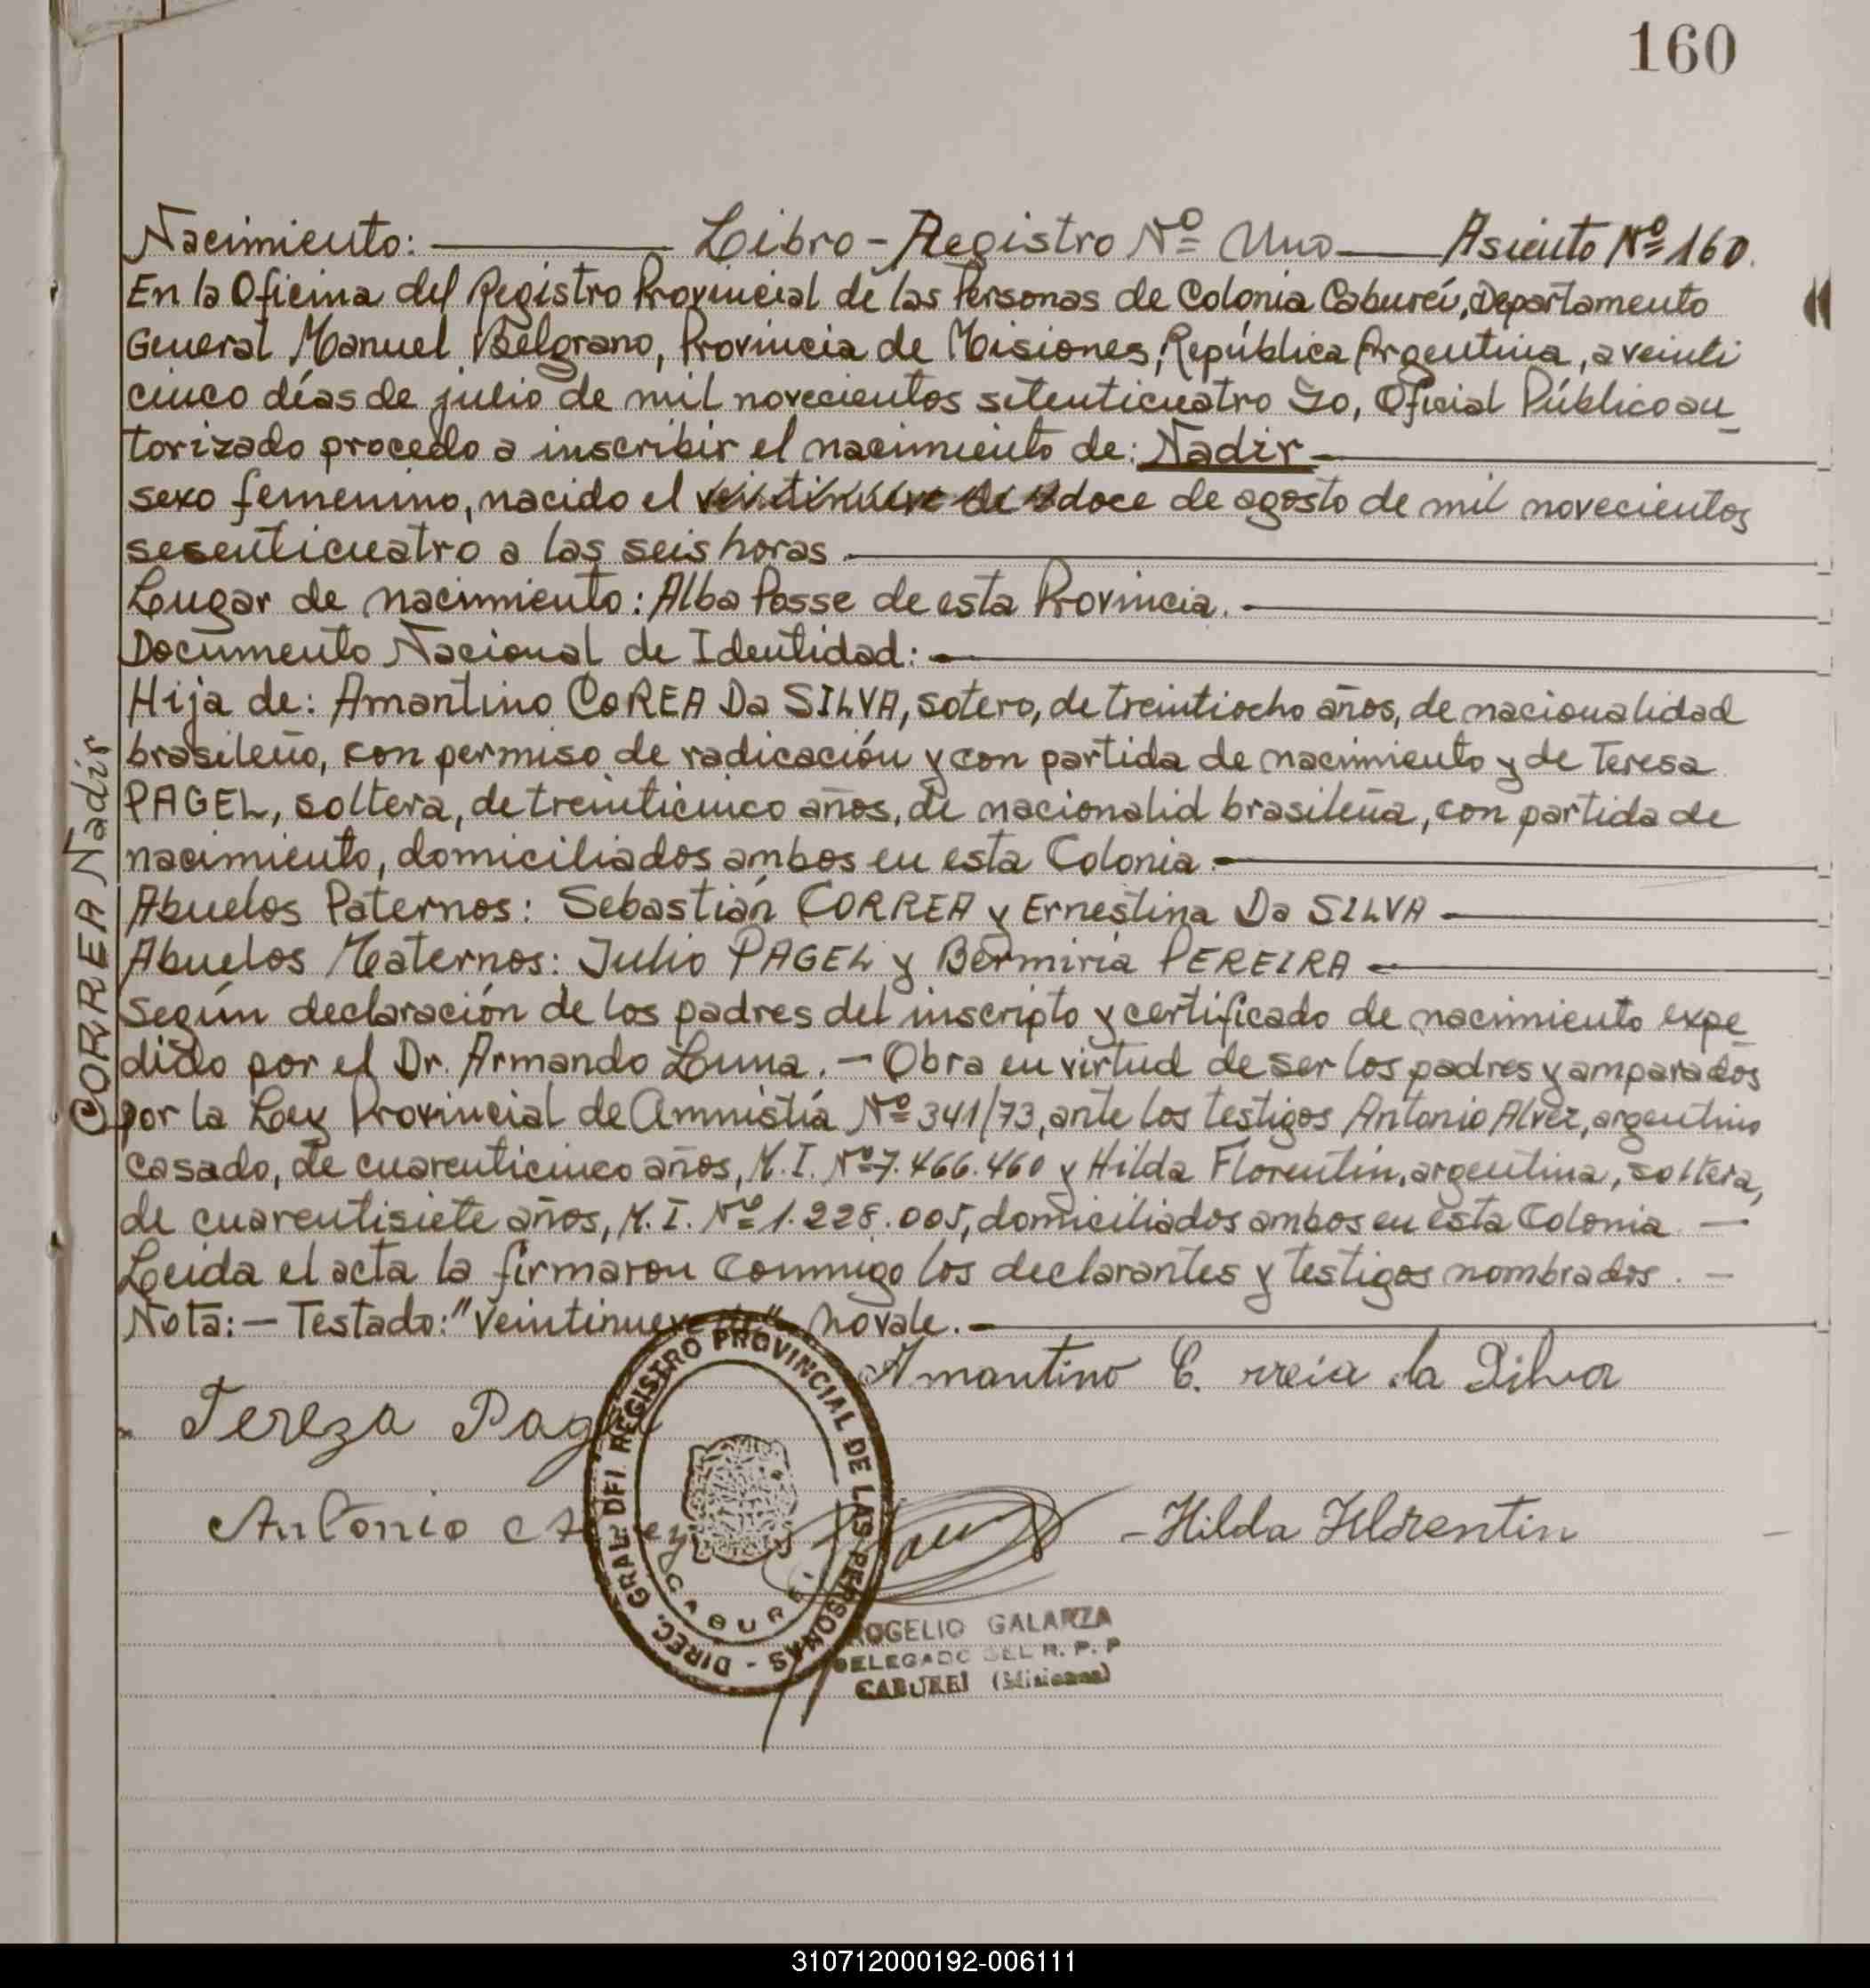 160
Nacimiento: Libro - Registro Nº Uno Asiento Nº 160.
En la Oficina del Registro Provincial de las Personas de Colonia Cabureí, Departamento
General Manuel Belgrano, Provincia de Misiones, República Argentina, a veinti
cinco días de julio de mil novecientos setenticuatro Yo, Oficial Público au_
torizado procedo a inscribir el nacimiento de: Nadir
sexo femenino, nacido el veintinueve de doce de agosto de mil novecientos
sesenticuatro a las seis horas.
Lugar de nacimiento: Alba Posse de esta Provincia.
Documento Nacional de Identidad:
Hija de: Amantino COREA Da SILVA, sotero, de treintiocho años, de nacionalidad
brasileño, con permiso de radicación y con partida de nacimiento y de Teresa
PAGEL, soltera, de treinticinco años, de nacionalid brasileña, con partida de
nacimiento, domiciliados ambos en esta Colonia.
Abuelos Paternos: Sebastián CORREA y Ernestina Da SILVA
Abuelos Maternos: Julio PAGEL y Bermiria PEREIRA
Según declaración de los padres del inscripto y certificado de nacimiento expe_
dido por el Dr. Armando Luna. - Obra en virtud de ser los padres y amparados
por la Ley Provincial de Amnistía Nº 341/73, ante los testigos Antonio Alvez, argentino
casado, de cuarenticinco años, M.I. Nº 7.466.460 y Hilda Florentín, argentina, soltera,
de cuarentisiete años, M.I. Nº 1.228.005, domiciliados ambos en esta Colonia. -
Leida el acta la firmaron conmigo los declarantes y testigos nombrados. -
Nota: - Testado: "veintinueve de" no vale. -
CORREA Nadir
Amantino C. rreia da Silva
Tereza Pagel
Antonio Alvez
- Hilda Florentin
DIREC. GRAL. DEL REGISTRO PROVINCIAL DE LAS PERSONAS -
CABUREI
ROGELIO GALARZA
DELEGADO DEL R. P. P
CABUREI (Misiones)
310712000192-006111